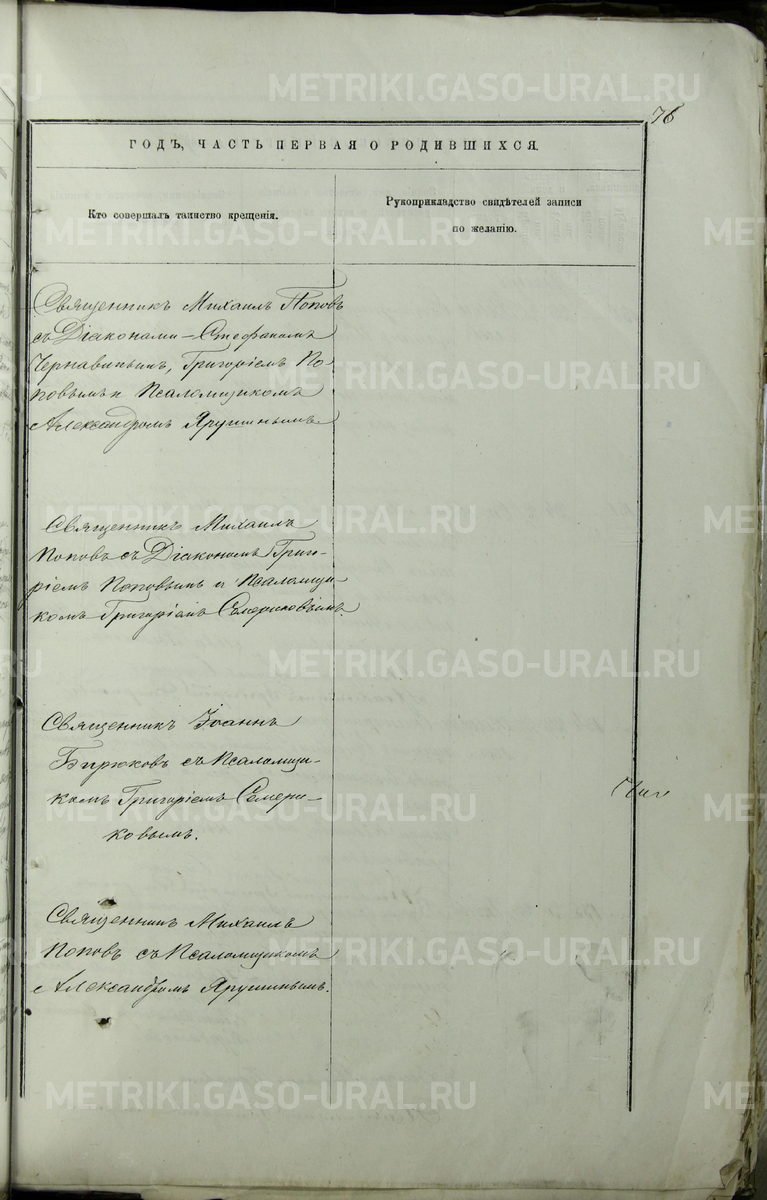 METRIKI.GASO-URAL.RU
76
ГОДЪ, ЧАСТЬ ПЕРВАЯ О РОДИВШИХСЯ.
Кто совершалъ таинство крещенія.
Рукоприкладство свидѣтелей записи
по желанію.
Священникъ Михаилъ Поповъ
съ Діаконами – Стефаномъ
Чернавинымъ, Григоріемъ По-
повымъ и Псаломщикомъ
Александромъ Ярушинымъ.
Священникъ Михаилъ
Поповъ съ Діакономъ Григо-
ріемъ Поповымъ и Псаломщи-
комъ Григоріемъ Семериковымъ.
Священникъ Іоаннъ
Бирюковъ съ Псаломщи-
комъ Григоріемъ Семери-
ковымъ.
Священникъ Михаилъ
Поповъ съ Псаломщикомъ
Александромъ Ярушинымъ.